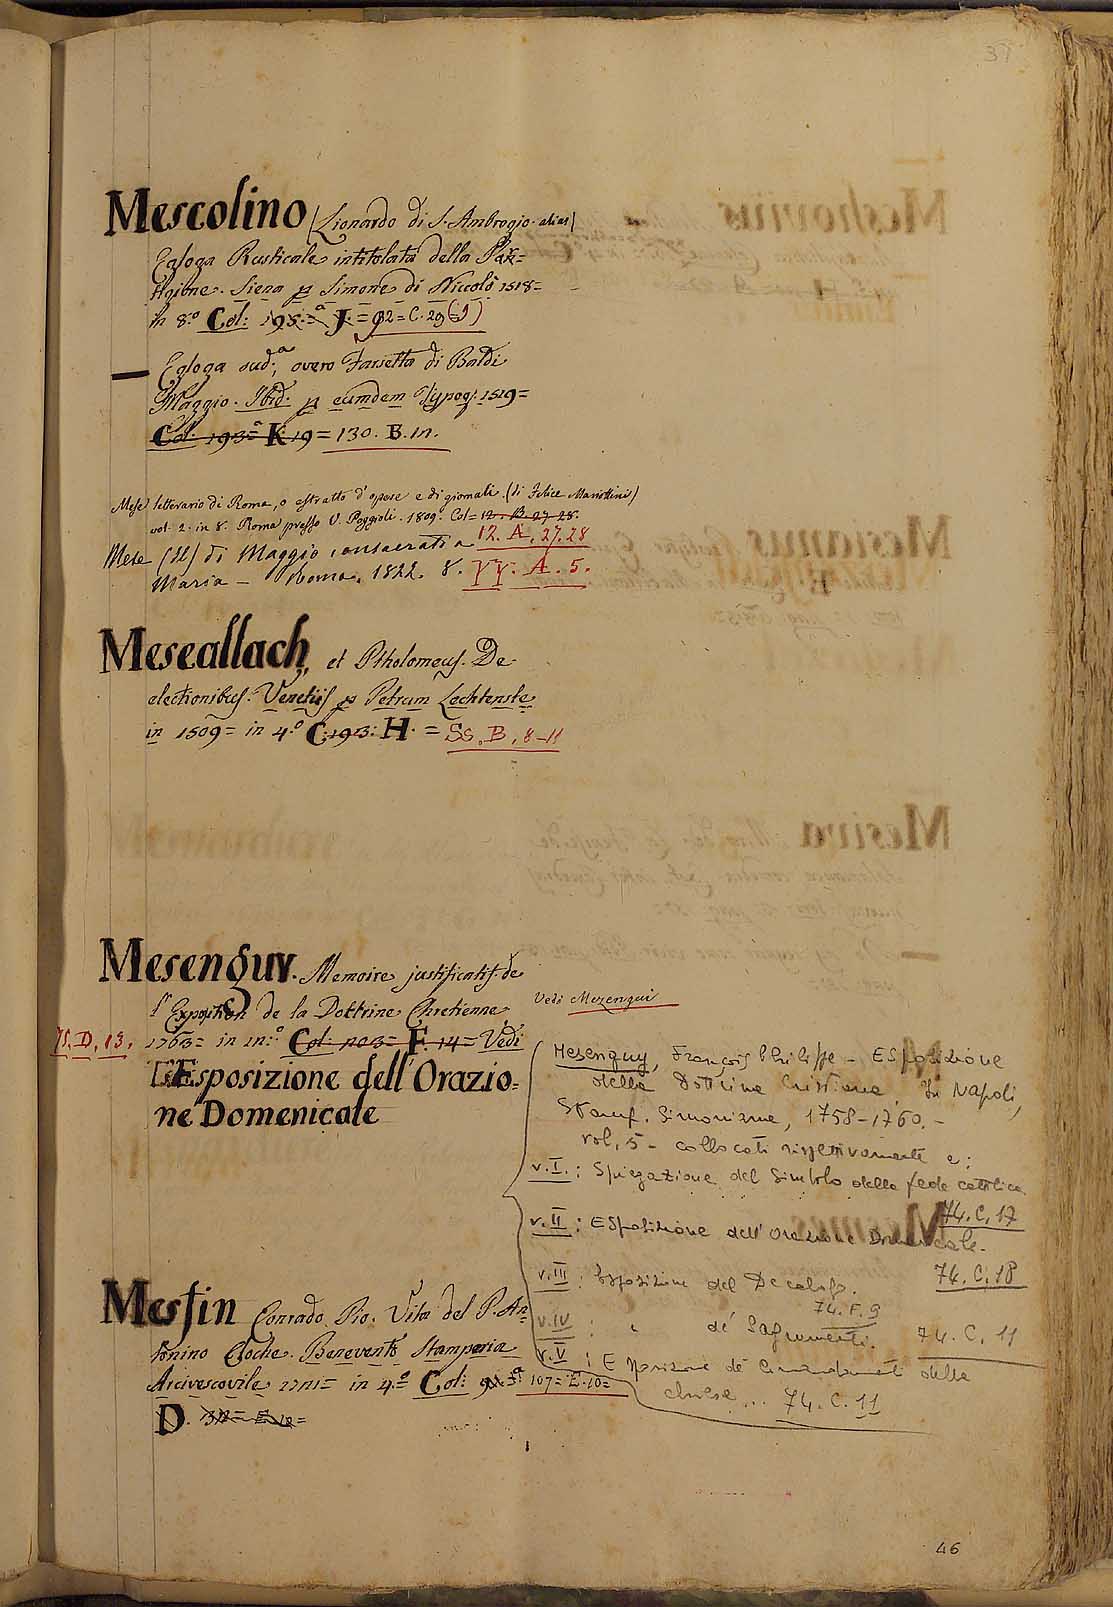 37
Mescolino (Lionardo di S. Ambrogio alias)
Egloga Rusticale intitolata della Par=
tigione. Siena p Simone di Niccolò 1518=
in 8.º Col: 193.=ª J.= 92= C. 29 (9)
— Egloga sud.ª, overo Farsetta di Baldi
Maggio. Ibid. p eumdem Typog. 1519=
Col: 193=ª K. 19= 130. B. in.
Mese letterario di Roma, o estratto d'opere e di giornali. (di Felice Mariottini)
vol. 2. in 8. Roma presso V. Poggioli. 1809. Col= 12. B. 27. 28.
12. A. 27. 28
Mese (Il) di Maggio consacrati a
Maria — Roma. 1822. 8. YY. A. 5.
Meseallach, et Ptholomeus. De
electionibus. Venetiis p Petrum Lechtenste
in 1509= in 4.º C. 193: H. = Ss. B, 8-11
Mesenguy. Memoire justificatif de
l'Exposition de la Dottrine Chretienne
75. D. 13. 1763= in 12:º Col: 203= F. 14= Vedi
Esposizione dell'Orazio=
ne Domenicale
Vedi Mezengui
Mesenguy, François Philippe - Esposizione
della Dottrina Cristiana. In Napoli,
Stamp. Simoniana, 1758-1760. -
vol. 5 - collocati rispettivamente a:
v. I.: Spiegazione del Simbolo della fede cattolica
74. C. 17
v. II: Esposizione dell'Orazione Domenicale.
74. C. 18
v. III: Esposizione del Decalogo.
74. F. 9
v. IV: " de' Sagramenti. 74. C. 11
v. V: Esposizione de' Comandamenti della
chiesa... 74. C. 11
Mesfin Conrado Pio. Vita del P. An
tonino Cloche. Benevento Stamperia
Arcivescovile 1721= in 4.º Col: 107= E. 10=
D.
46